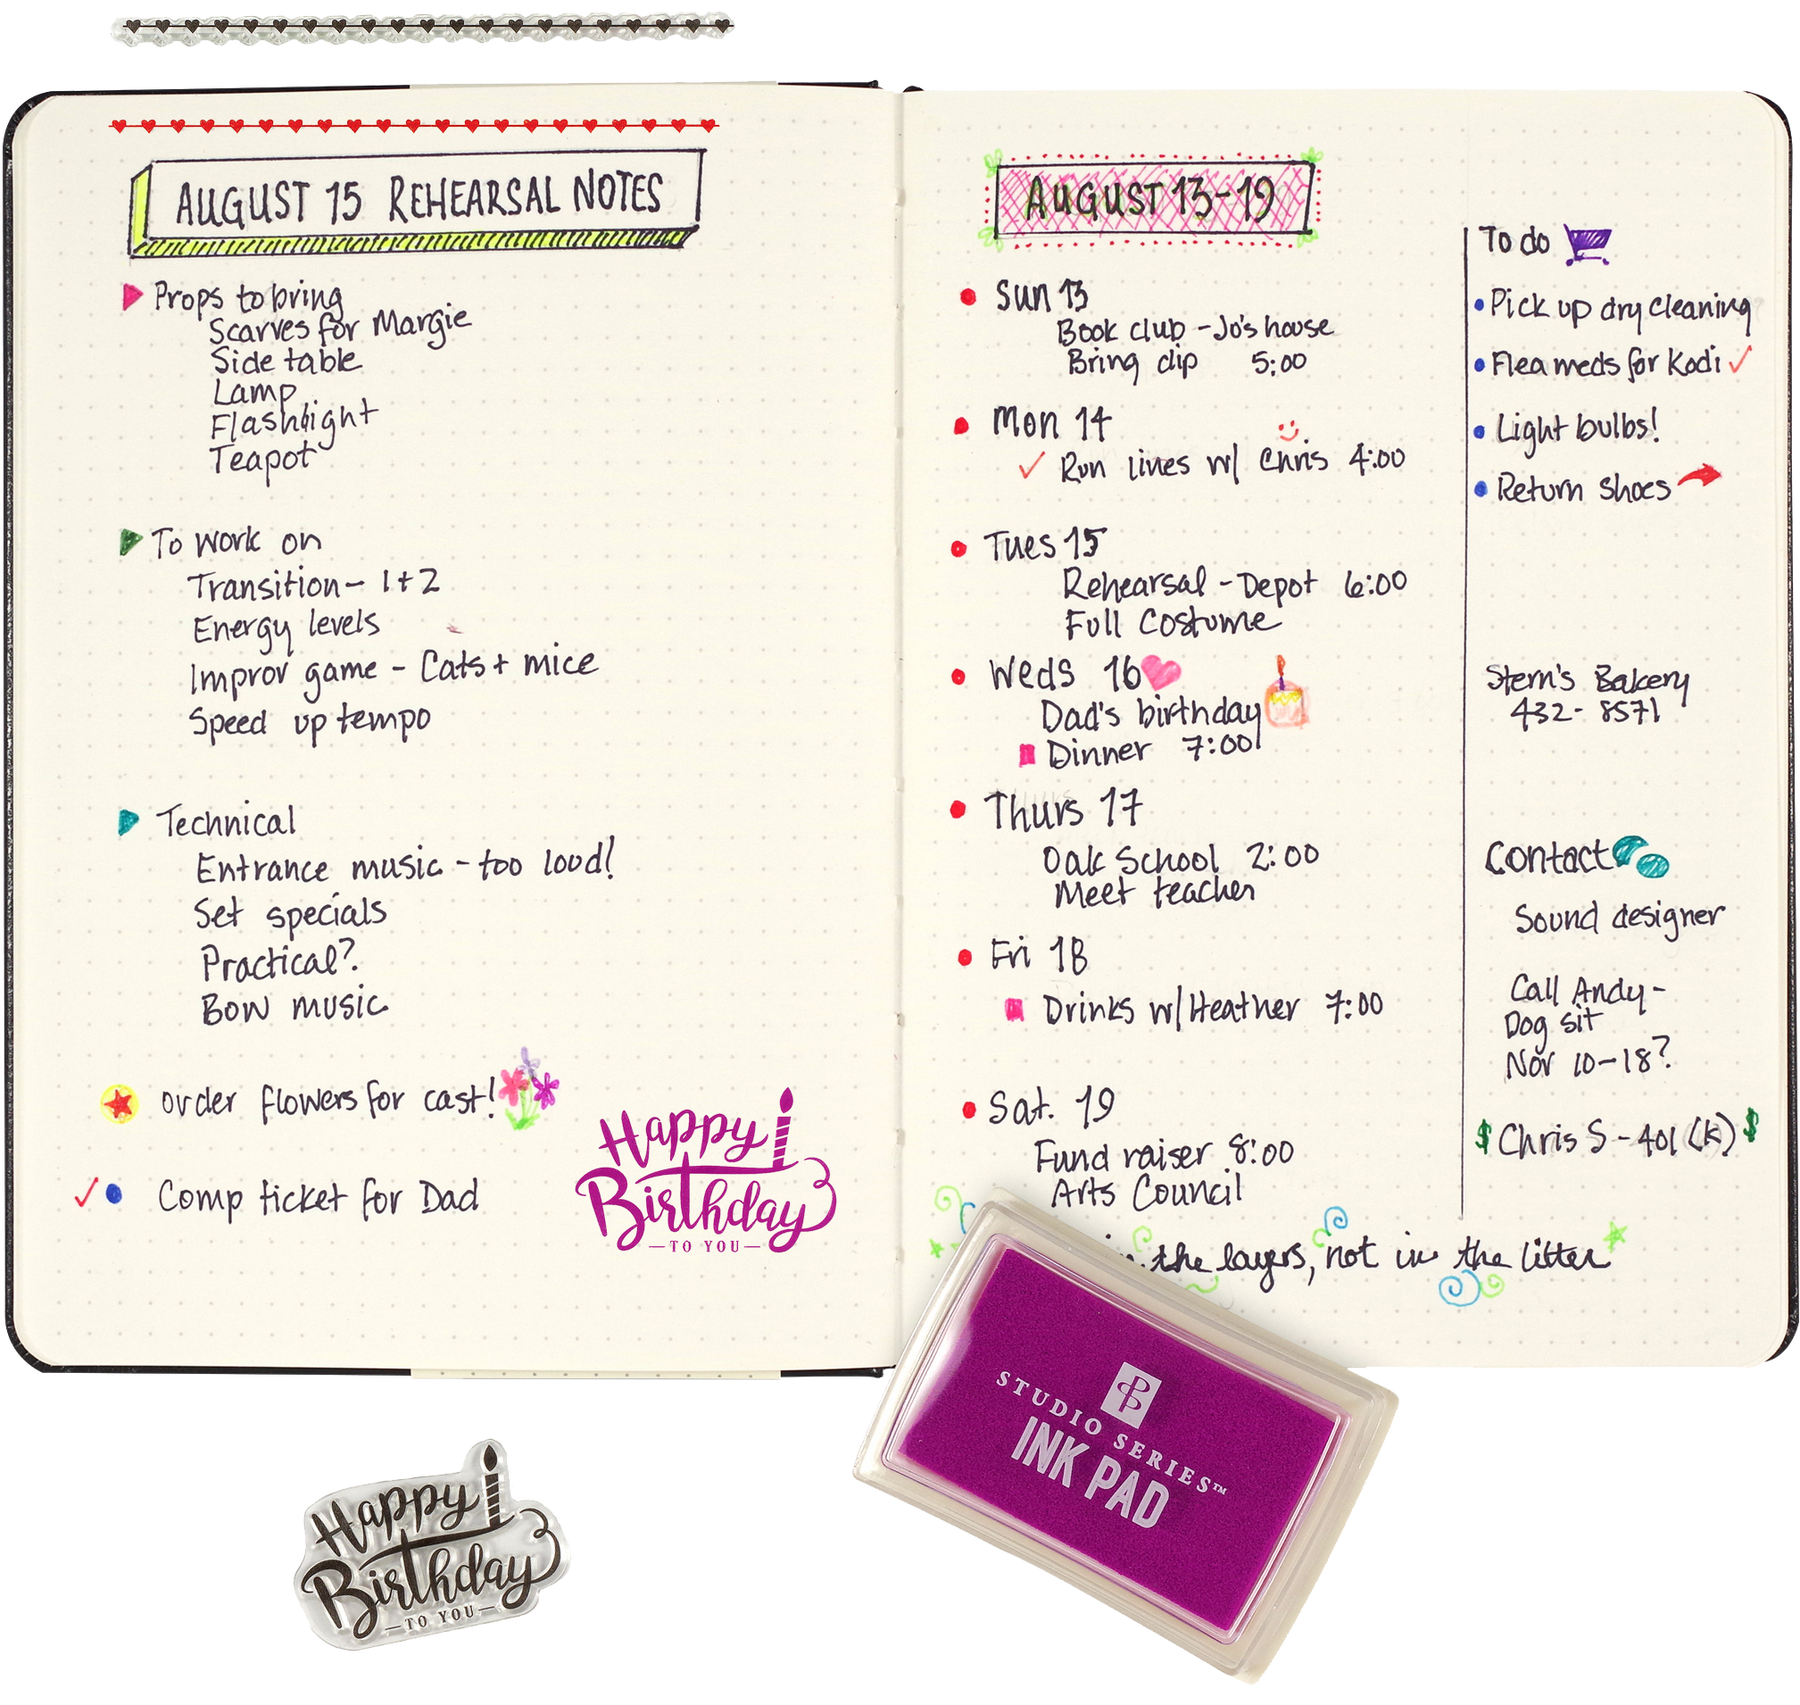 AUGUST 15 REHEARSAL NOTES
Props to bring
Scarves for Margie
Side table
Lamp
Flashlight
Teapot
To work on
Transition - 1+2
Energy levels
Improv game - Cats + mice
Speed up tempo
Technical
Entrance music - too loud!
Set specials
Practical?
Bow music
order flowers for cast!
Comp ticket for Dad
Happy
Birthday
- TO YOU -
AUGUST 13-19
Sun 13
Book club - Jo's house
Bring dip 5:00
Mon 14
Run lines w/ Chris 4:00
Tues 15
Rehearsal - Depot 6:00
Full Costume
Weds 16
Dad's birthday
Dinner 7:00
Thurs 17
Oak School 2:00
Meet teacher
Fri 18
Drinks w/ Heather 7:00
Sat. 19
Fund raiser 8:00
Arts Council
the layers, not in the litter
To do
Pick up dry cleaning
Flea meds for Kodi
Light bulbs!
Return shoes
Stern's Bakery
432-8571
Contact
Sound designer
Call Andy -
Dog sit
Nov 10-18?
$ Chris S - 401(K) $
Happy
Birthday
- TO YOU -
STUDIO SERIES™
INK PAD